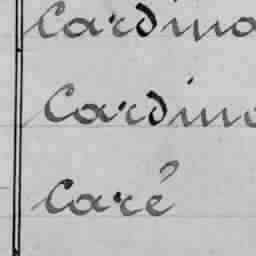 Cardino
Cardino
Caré